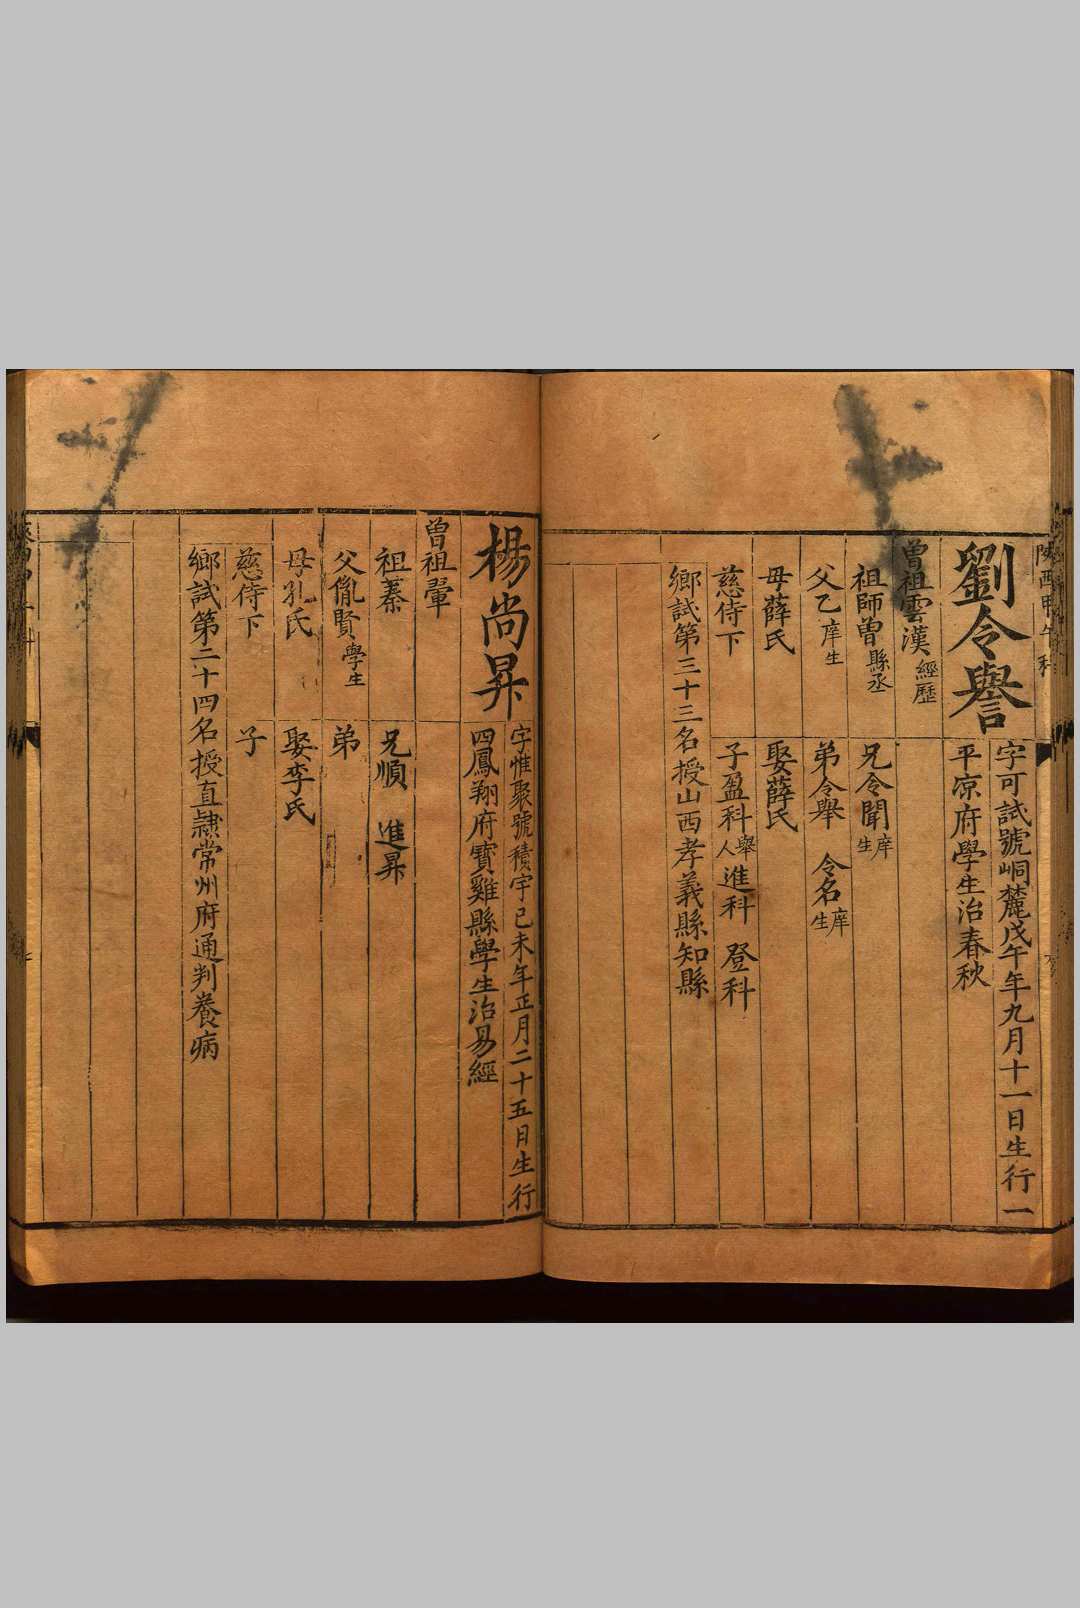 陝西甲午科
劉令譽
字可試號峒麓戊午年九月十一日生行一
平凉府學生治春秋
曾祖雲漢經歷
祖師曾縣丞
兄令聞庠生
父乙庠生
弟令舉 令名庠生
母薛氏
娶薛氏
慈侍下
子盈科舉人進科 登科
鄉試第三十三名授山西孝義縣知縣
楊尚昇
字惟聚號積宇己未年正月二十五日生行
四鳳翔府寶雞縣學生治易經
曾祖翬
祖蓁
兄順 進昇
父胤賢學生
弟
母孔氏
娶李氏
慈侍下
子
鄉試第二十四名授直隸常州府通判養病